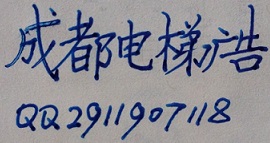 成都电梯广告
QQ2911907118